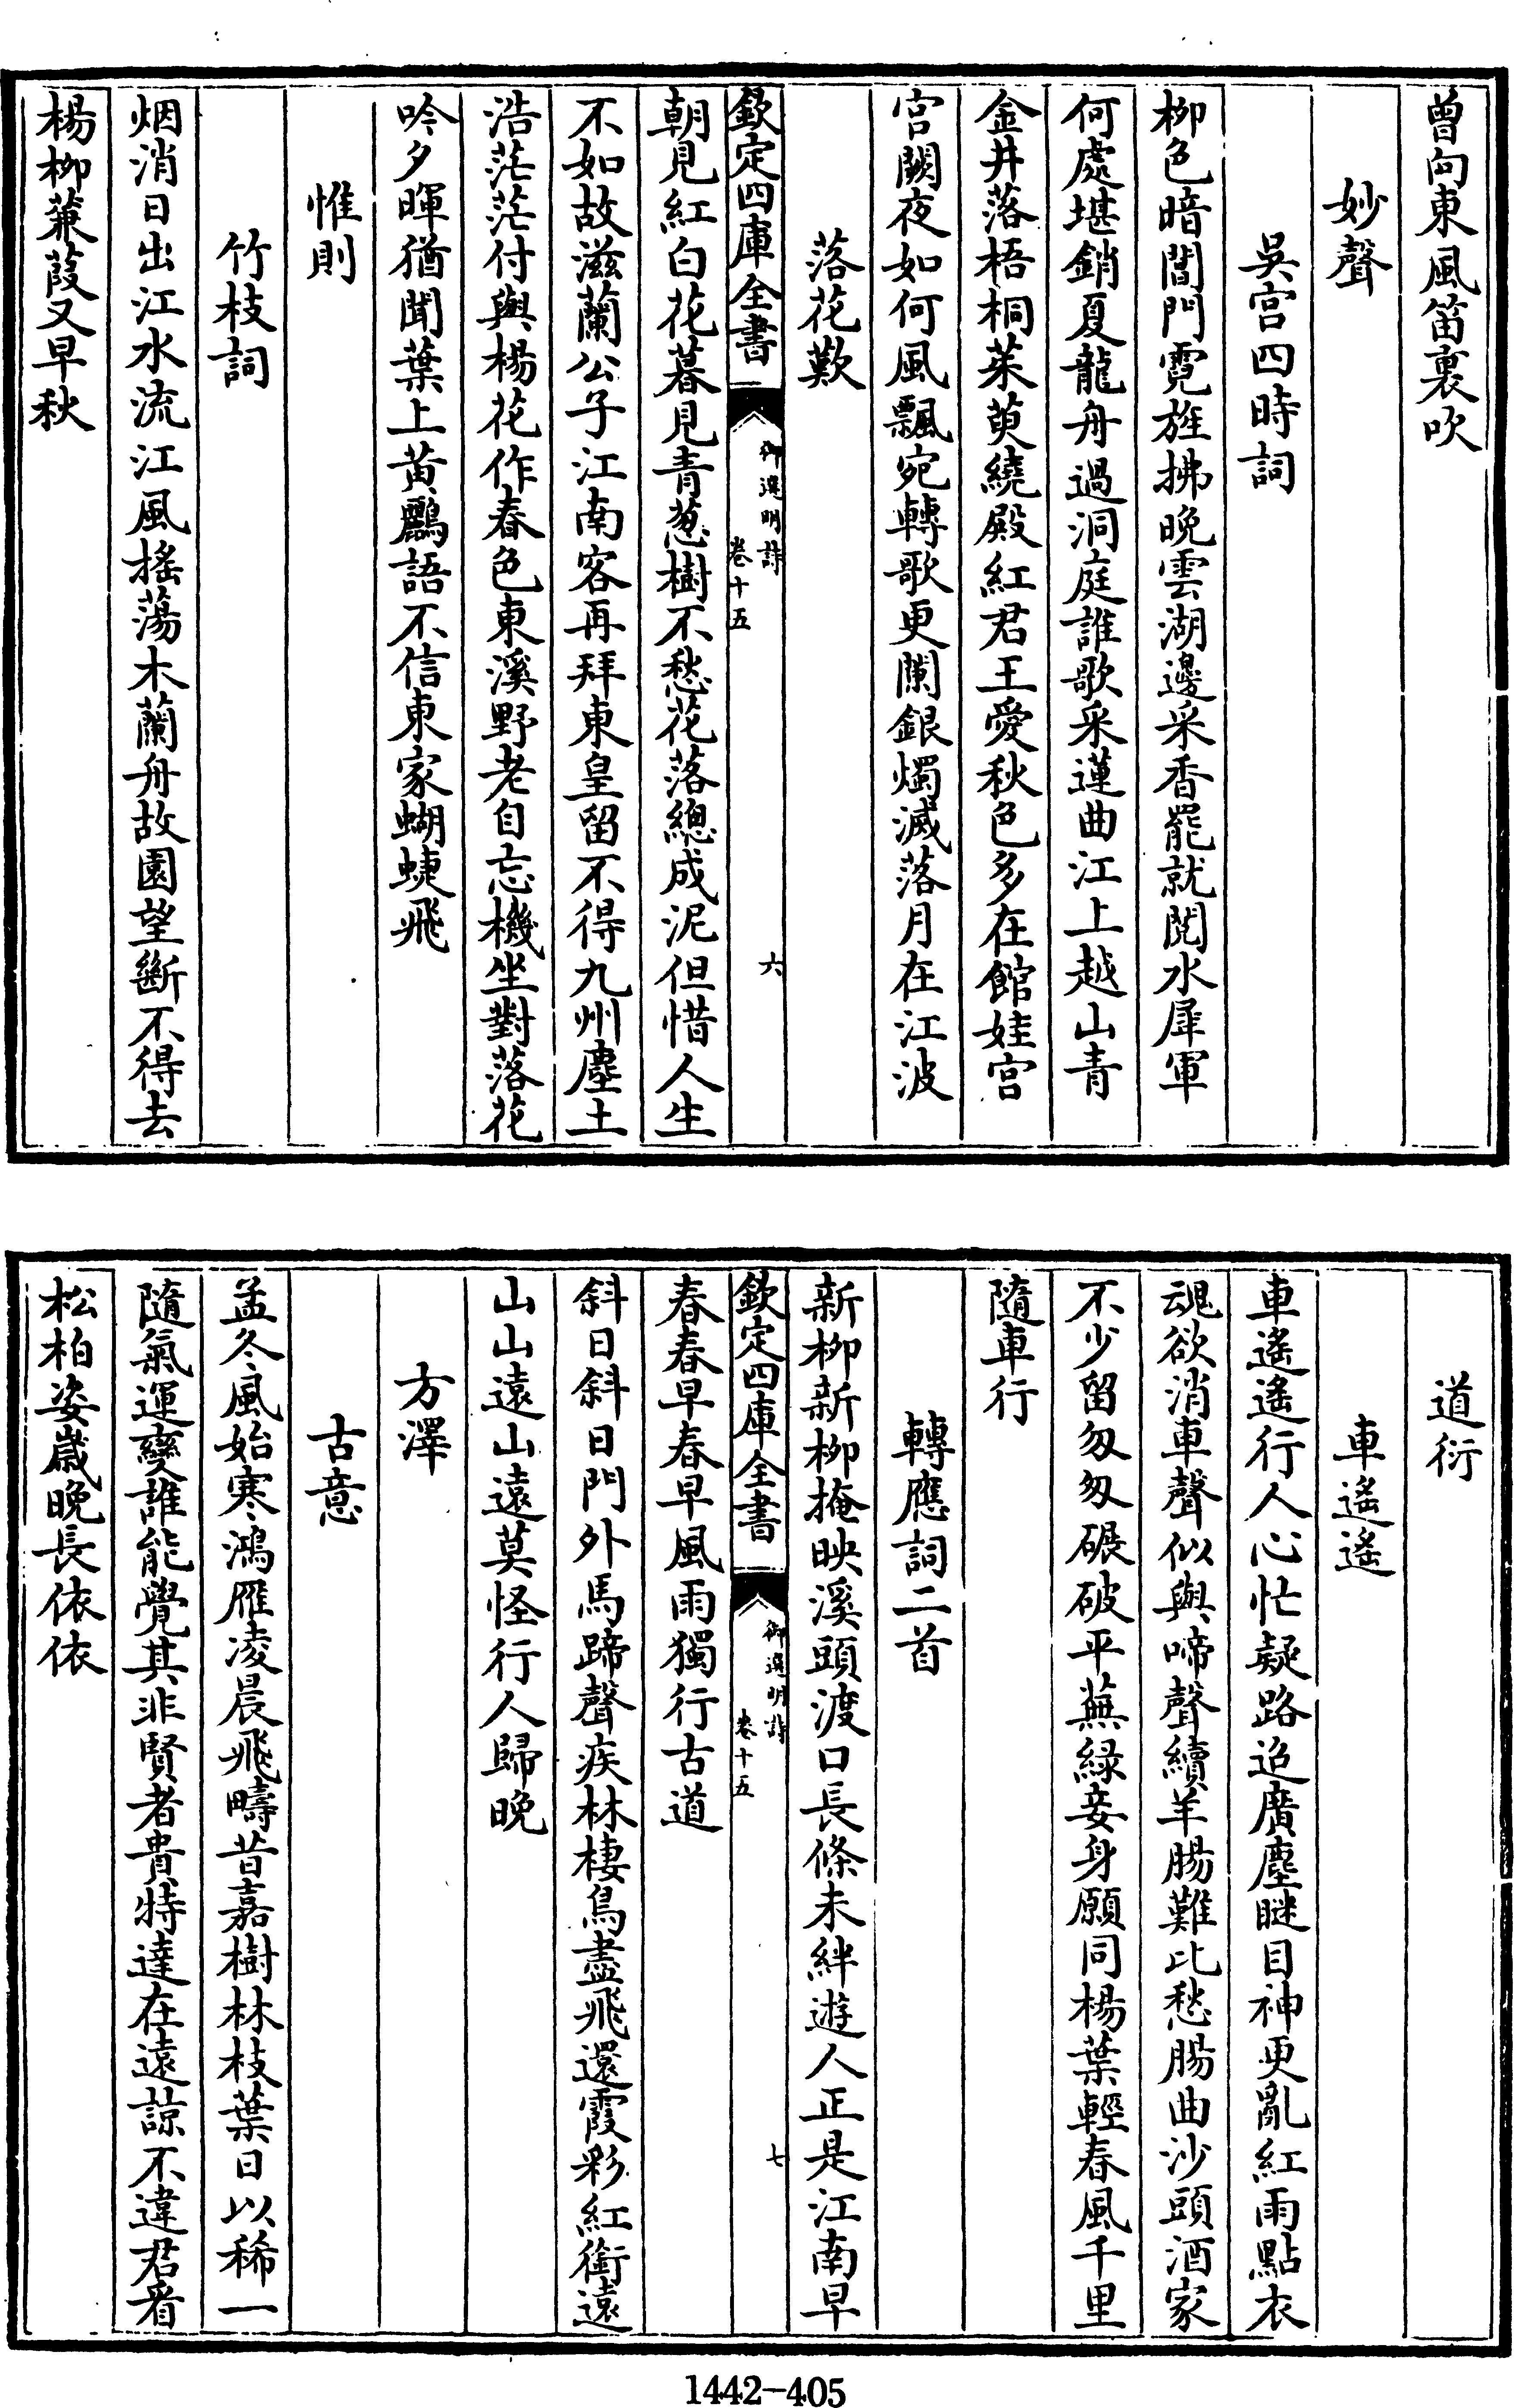 曾向東風笛裏吹
妙聲
吳宫四時詞
柳色暗閶門霓旌拂晚雲湖邊采香罷就閲水犀軍
何處堪銷夏龍舟過洞庭誰歌采蓮曲江上越山青
金井落梧桐茱萸繞殿紅君王愛秋色多在館娃宫
宫闕夜如何風飄宛轉歌更闌銀燭滅落月在江波
落花歎
欽定四庫全書
御選明詩
卷十五
六
朝見紅白花暮見青葱樹不愁花落總成泥但惜人生
不如故滋蘭公子江南客再拜東皇留不得九州塵土
浩茫茫付與楊花作春色東溪野老自忘機坐對落花
吟夕暉猶聞葉上黄鸝語不信東家蝴蜨飛
惟則
竹枝詞
烟消日出江水流江風搖蕩木蘭舟故園望斷不得去
楊柳蒹葭又早秋
道衍
車遙遙
車遙遙行人心忙疑路迢廣塵瞇目神更亂紅雨點衣
魂欲消車聲似與啼聲續羊腸難比愁腸曲沙頭酒家
不少留匆匆碾破平蕪緑妾身願同楊葉輕春風千里
隨車行
轉應詞二首
新柳新柳掩映溪頭渡口長條未絆遊人正是江南早
欽定四庫全書
御選明詩
卷十五
七
春春早春早風雨獨行古道
斜日斜日門外馬蹄聲疾林棲鳥盡飛還霞彩紅銜遠
山山遠山遠莫怪行人歸晚
方澤
古意
孟冬風始寒鴻雁凌晨飛疇昔嘉樹林枝葉日以稀一
隨氣運變誰能覺其非賢者貴特達在遠諒不違君看
松柏姿歲晚長依依
1442-405